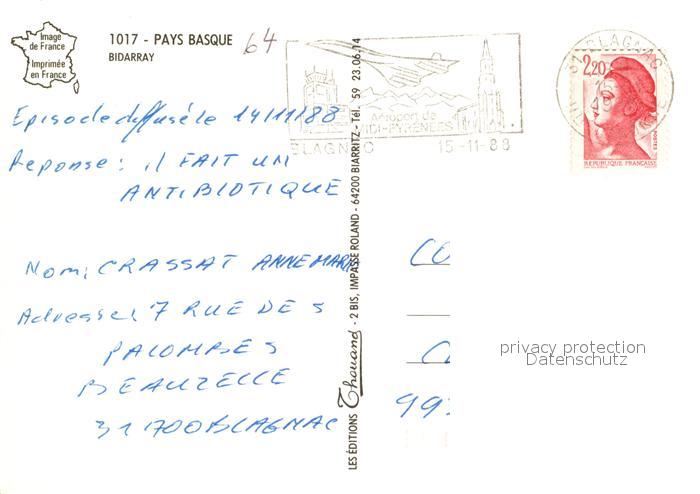 Image
de France
Imprimée
en France
1017 - PAYS BASQUE
BIDARRAY
64
Episode diffusé le 14/11/88
Reponse : il FAIT UN
ANTIBIOTIQUE
Nom: CRASSAT ANNE MARIE
Adresse: 7 RUE DES
PALOMBES
BEAUZELLE
31700 BLAGNAC
LES ÉDITIONS Thouand - 2 BIS, IMPASSE ROLAND - 64200 BIARRITZ - Tél. 59 23.06.14
Aéroport de
MIDI-PYRENEES
BLAGNAC 15-11-88
BLAGNAC
2,20
POSTES
REPUBLIQUE FRANÇAISE
CO
C
99
privacy protection
Datenschutz